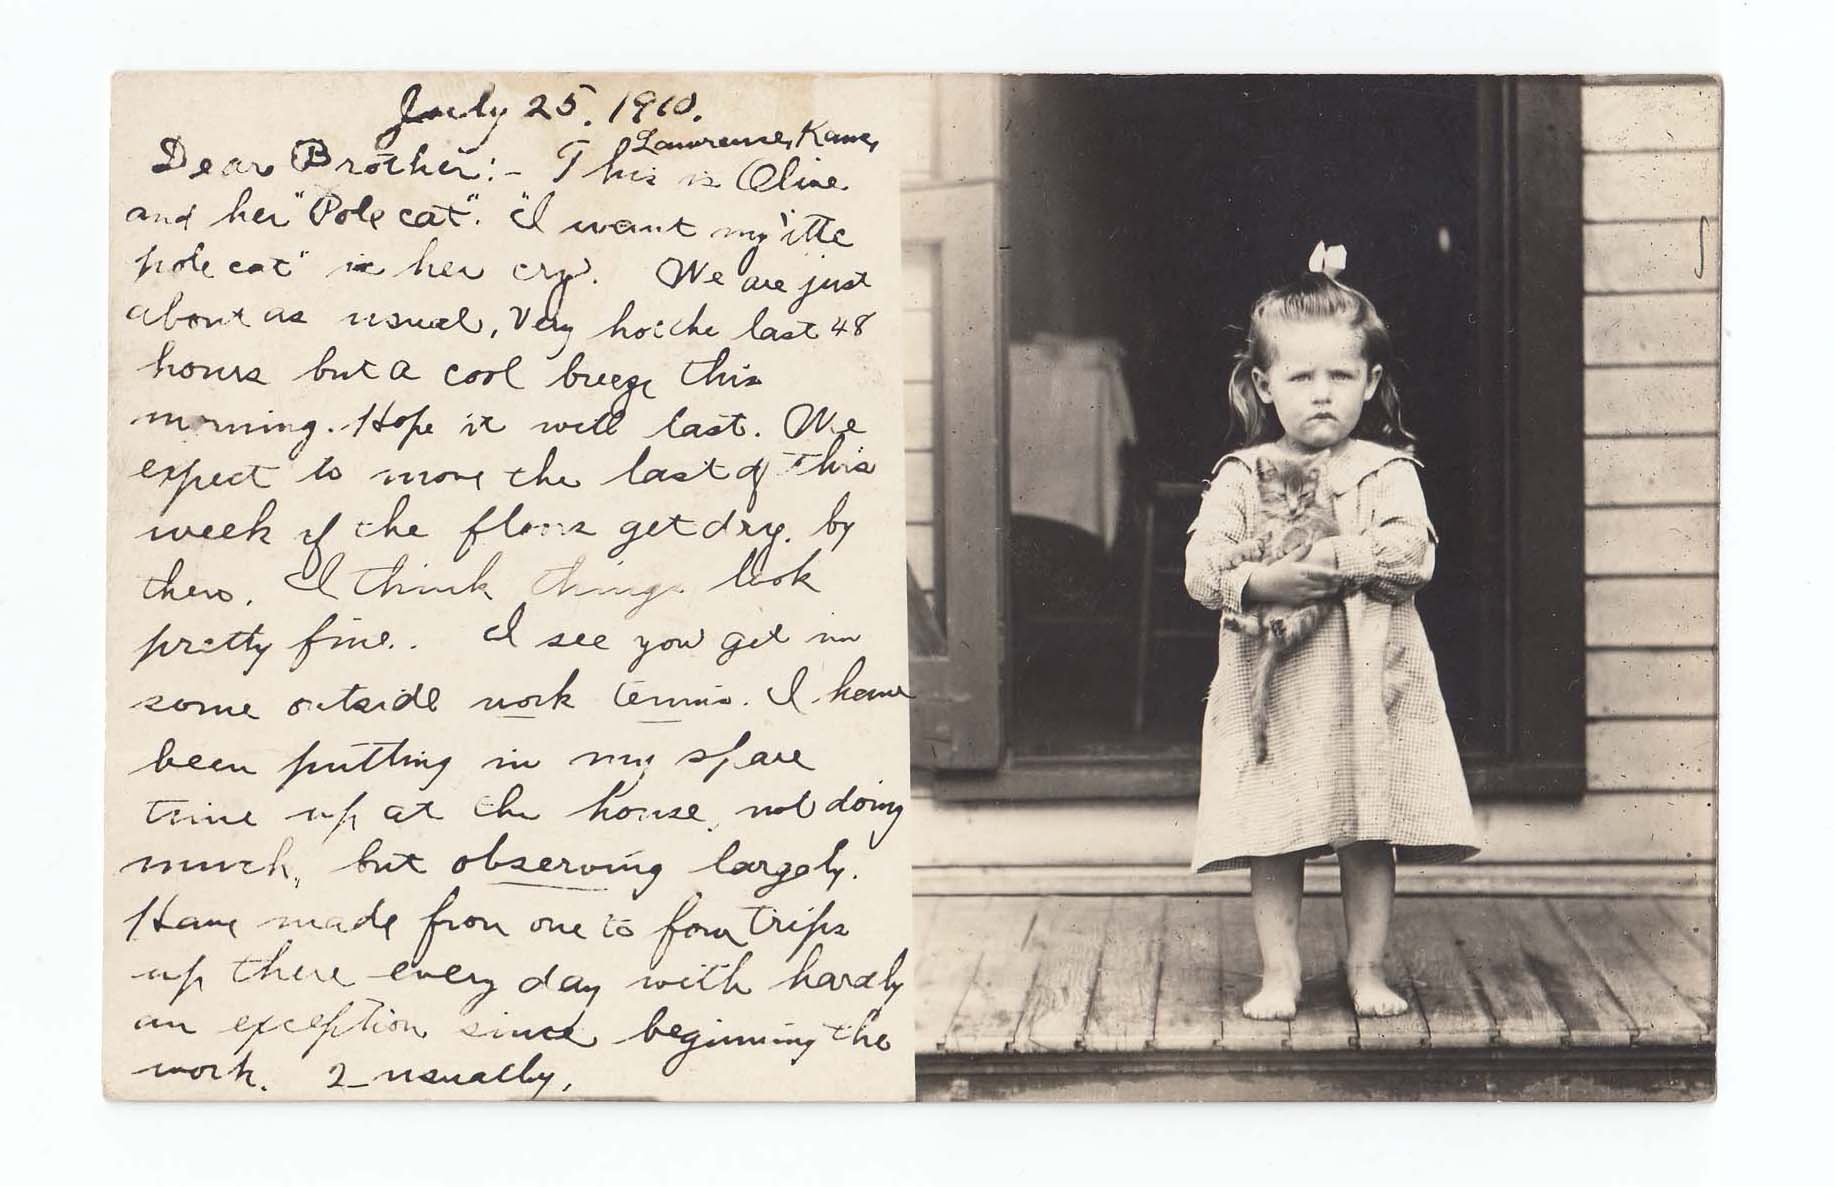 July 25. 1910.
Lawrence, Kans,
Dear Brother:- This is Oline
and her "Pole cat". "I want my 'itte
pole cat" is her cry. We are just
about as usual, Very hot the last 48
hours but a cool breeze this
morning. Hope it will last. We
expect to move the last of this
week if the floors get dry. by
then. I think things look
pretty fine. I see you get in
some outside work tennis. I have
been putting in my spare
time up at the house, not doing
much, but observing largely.
Have made from one to four trips
up there every day with hardly
an exception since beginning the
work. 2 usually.